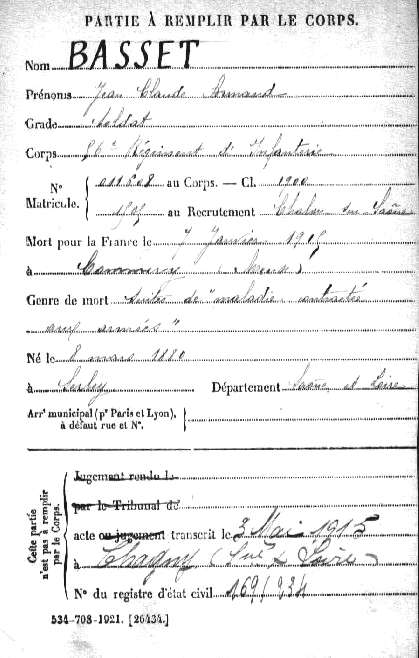 PARTIE À REMPLIR PAR LE CORPS.
Nom BASSET
Prénoms Jean Claude Armand
Grade Soldat
Corps 56e Régiment d'Infanterie
N° Matricule. 011808 au Corps. — Cl. 1900
1505 au Recrutement Chalon sur Saône
Mort pour la France le 7 Janvier 1915
à Commercy (Meuse)
Genre de mort suites de "maladie contractée
aux armées"
Né le 8 mars 1880
à Département Saône et Loire
Arrt municipal (pr Paris et Lyon),
à défaut rue et N°.
Cette partie n'est pas à remplir par le Corps.
Jugement rendu le
par le Tribunal de
acte ou jugement transcrit le 3 Mai 1915
à Chagny (Saône & Loire)
N° du registre d'état civil 169/934
534-708-1921. [26434.]